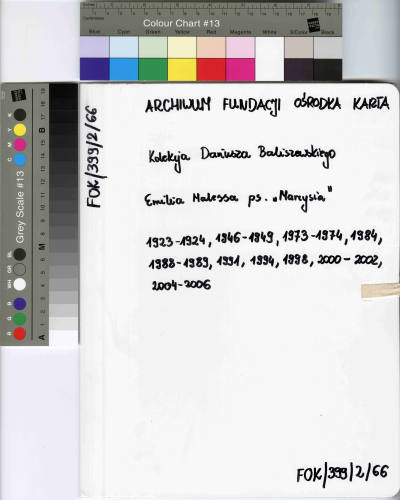 Colour Chart #13
Blue Cyan Green Yellow Red Magenta White 3/Color Black
Grey Scale #13
C M Y K
R G B WH GR BL
A 1 2 3 4 5 6 M 8 9 10 11 12 13 14 15 B 17 18 19
FOK/399/2/66
ARCHIWUM FUNDACJI OŚRODKA KARTA
Kolekcja Dariusza Baliszewskiego
Emilia Malessa ps. „Marcysia"
1923-1924, 1946-1949, 1973-1974, 1984,
1988-1989, 1991, 1994, 1998, 2000-2002,
2004-2006
FOK/399/2/66